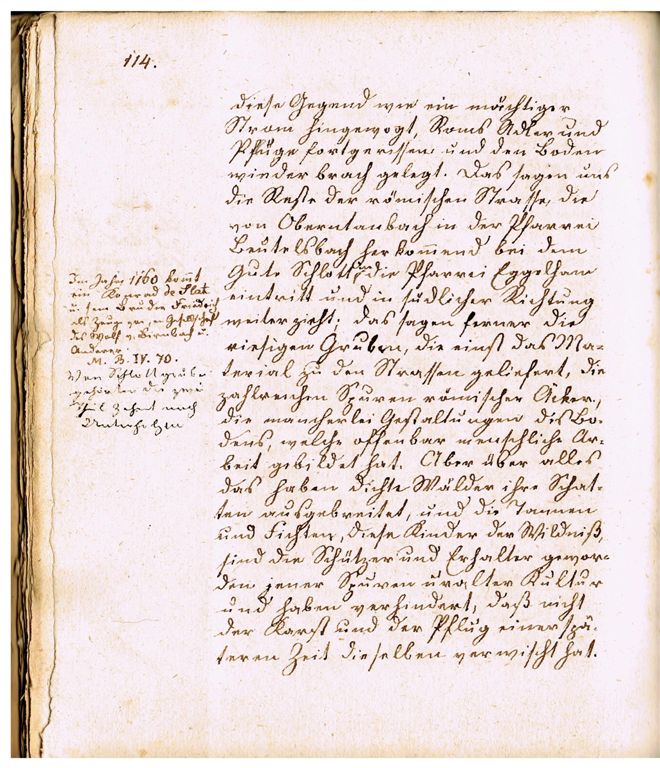 114.
diese Gegend wie ein mächtiger
Strom hingewogt, Roms Adler und
Pflüge fortgerissen und den Boden
wieder brach gelegt. Das sagen uns
die Reste der römischen Strasse, die
von Oberntanbach in der Pfarrei
Beutelsbach herkommend bei dem
Gute Schlott in die Pfarrei Egglham
eintritt und in südlicher Richtung
weiterzieht; das sagen ferner die
riesigen Gruben, die einst das Ma-
terial zu den Strassen geliefert, die
zahlreichen Spuren römischer Äcker,
die mancherlei Gestaltungen des Bo-
dens, welche offenbar menschliche Ar-
beit gebildet hat. Aber über alles
das haben dichte Wälder ihre Schat-
ten ausgebreitet, und die Tannen
und Fichten, diese Kinder der Wildniß,
sind die Schützer und Erhalter gewor-
den jener Spuren uralter Kultur
und haben verhindert, daß nicht
der Karst und der Pflug einer spä-
teren Zeit dieselben verwischt hat.
Im Jahre 1160 kommt
ein Konrad de Slat
u. sein Bruder Friedrich
als Zeuge in Gesellschaft
des Wolf v. Birnbach u.
Anderer
M. B. IV. 70.
Von Schlottgrube
gehörten die zwei
Theil Zehent nach